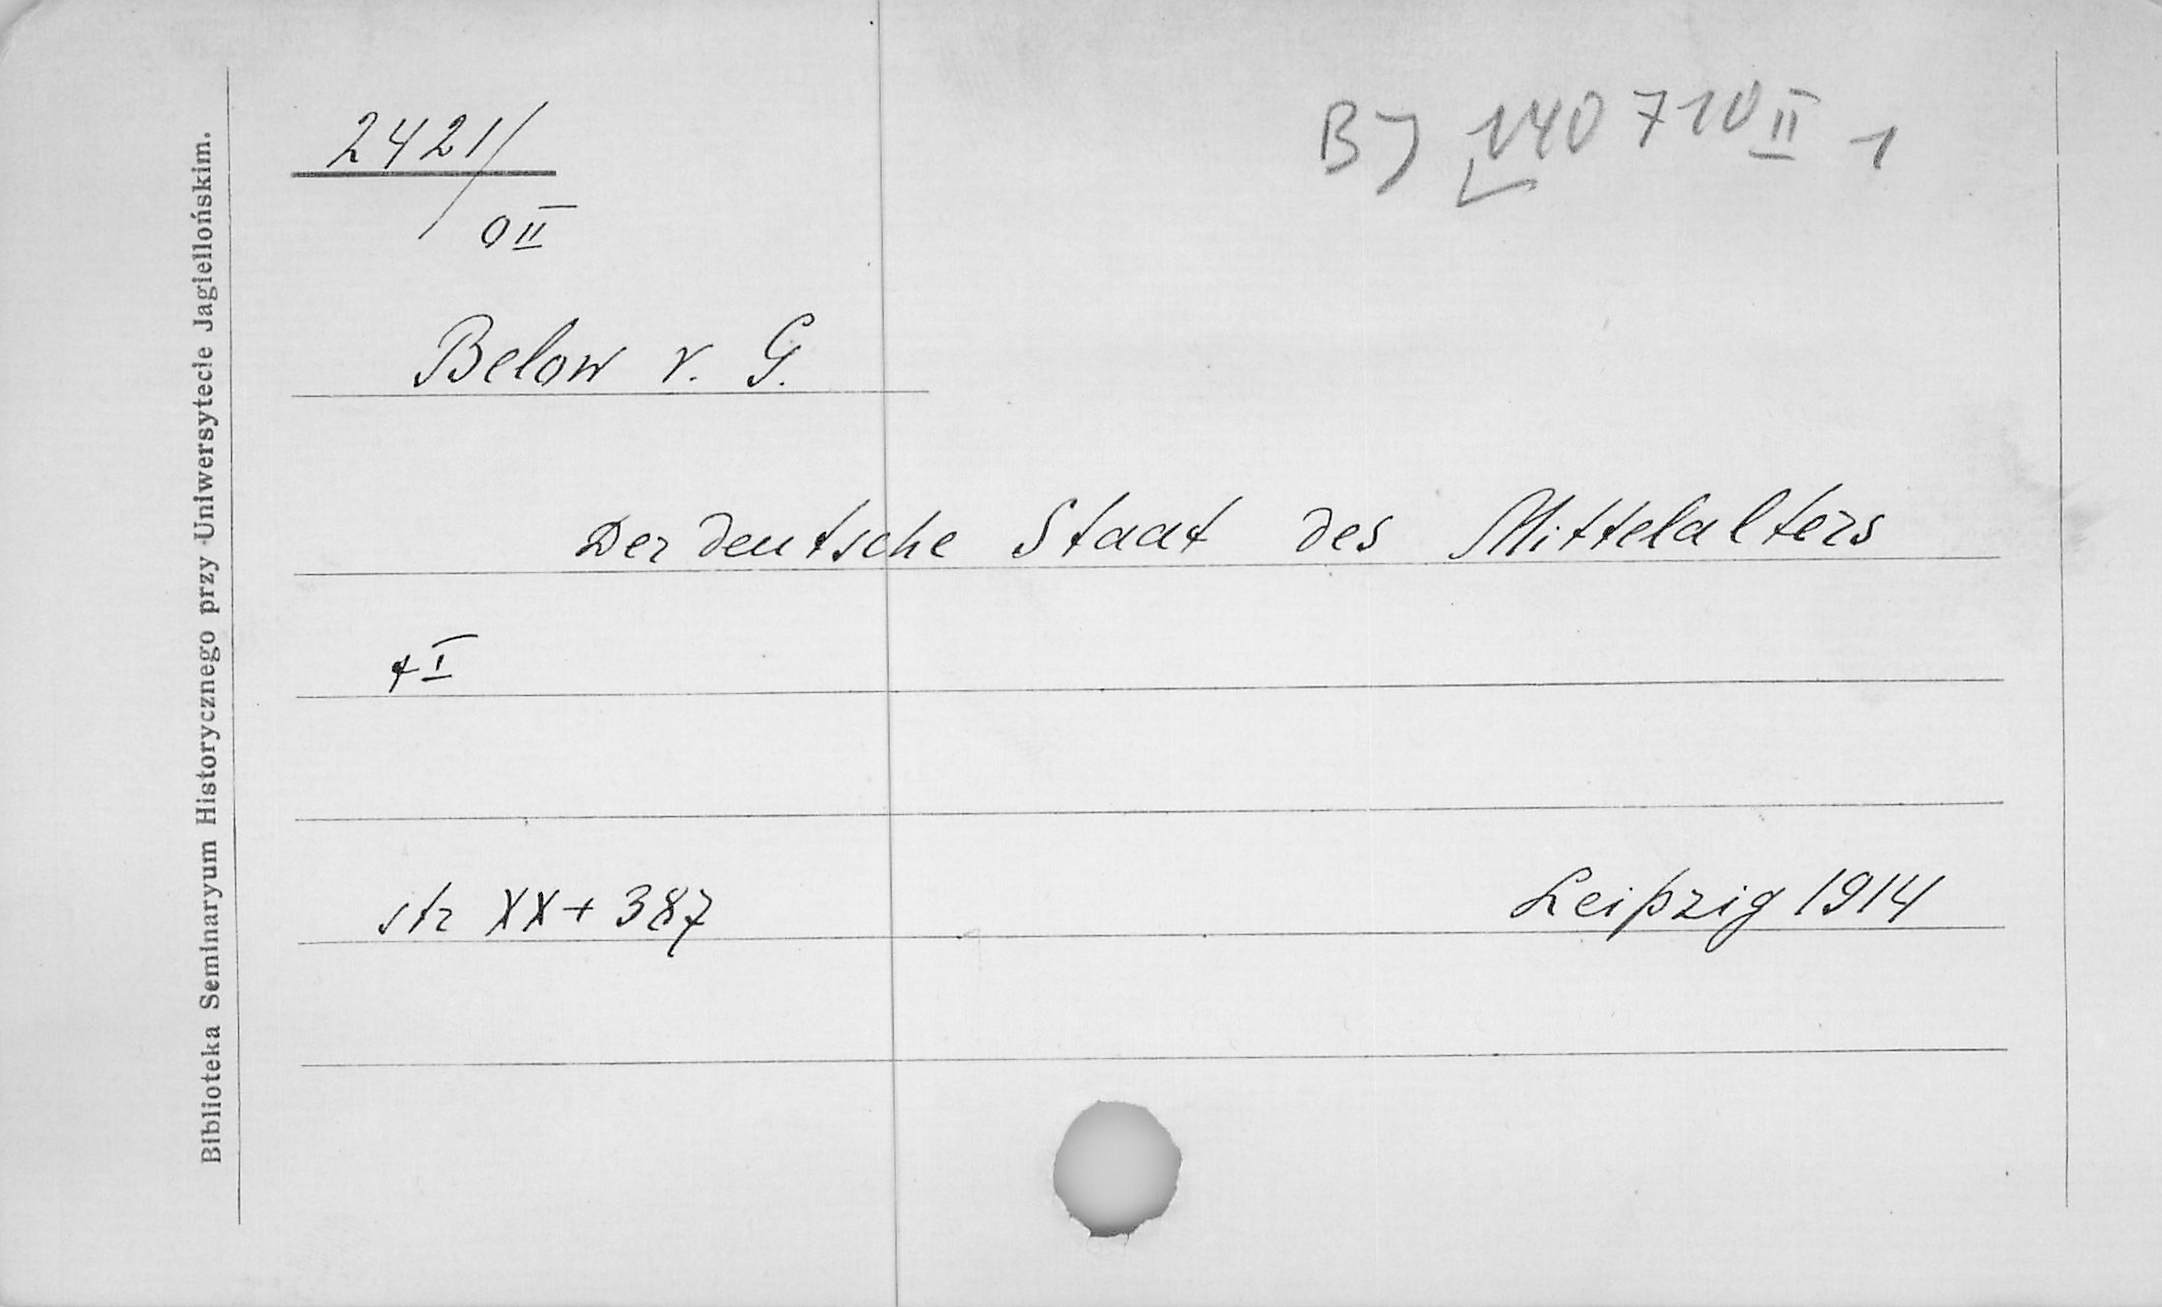 2421/
0 II
BJ 140 710 II 1
Below v. G.
Der deutsche Staat des Mittelalters
t I
str XX + 387
Leipzig 1914
Biblioteka Seminaryum Historycznego przy Uniwersytecie Jagiellońskim.